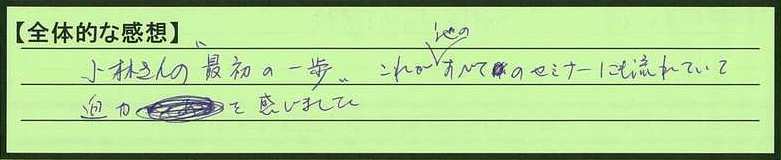 【全体的な感想】
小林さんの"最初の一歩"これが他のすべてのセミナーにも流れていて
迫力を感じました